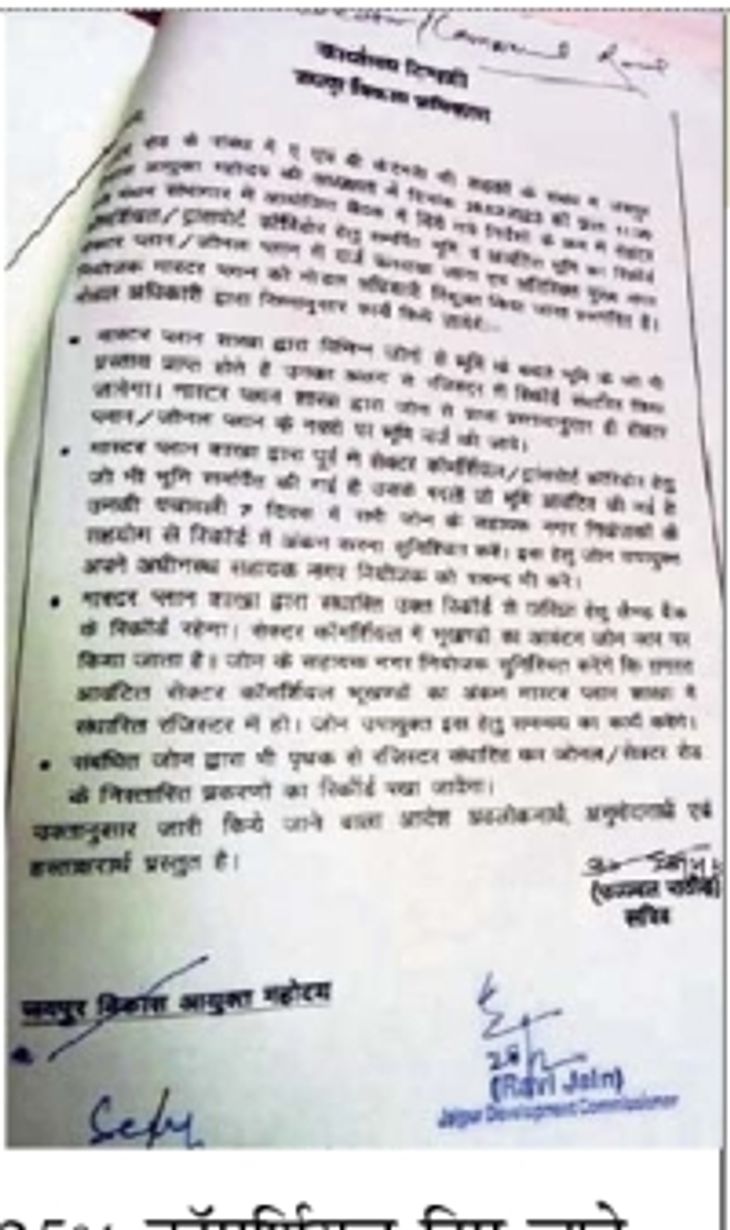 कार्यालय टिप्पणी
जयपुर विकास प्राधिकरण
रोड के संबंध में ए एच बी केटेगरी की सड़कों के संबंध में जयपुर
आयुक्त महोदय की अध्यक्षता में दिनांक को प्रातः
सभागार में आयोजित बैठक में दिये गये निर्देशों के क्रम में सेक्टर
कॉमर्शियल/ट्रांसपोर्ट कॉरिडोर हेतु समर्पित भूमि व आवंटित भूमि का रिकॉर्ड
सेक्टर प्लान/जोनल प्लान में दर्ज करवाया जाना एवं अतिरिक्त मुख्य नगर
नियोजक मास्टर प्लान को नोडल अधिकारी नियुक्त किया जाना प्रस्तावित है।
नोडल अधिकारी द्वारा निम्नानुसार कार्य किये जावेंगे:-
• मास्टर प्लान शाखा द्वारा विभिन्न जोनों से भूमि के बदले भूमि के जो भी
प्रस्ताव प्राप्त होते है उनका अलग से रजिस्टर में रिकॉर्ड संधारित किया
जायेगा। मास्टर प्लान शाखा द्वारा जोन से प्राप्त प्रस्तावानुसार ही सेक्टर
प्लान/जोनल प्लान के नक्शे पर भूमि दर्ज की जावे।
• मास्टर प्लान शाखा द्वारा पूर्व में सेक्टर कॉमर्शियल/ट्रांसपोर्ट कॉरिडोर हेतु
जो भी भूमि समर्पित की गई है उसके बदले जो भूमि आवंटित की गई है
उनकी पत्रावली 7 दिवस में सभी जोन के सहायक नगर नियोजकों के
सहयोग से रिकॉर्ड में अंकन करना सुनिश्चित करें। इस हेतु जोन उपायुक्त
अपने अधीनस्थ सहायक नगर नियोजक को पाबन्द भी करे।
• मास्टर प्लान शाखा द्वारा संधारित उक्त रिकॉर्ड से हेतु लैण्ड बैंक
के रिकॉर्ड रहेगा। सेक्टर कॉमर्शियल में भूखण्डों का आवंटन जोन स्तर पर
किया जाता है। जोन के सहायक नगर नियोजक सुनिश्चित करेंगे कि समस्त
आवंटित सेक्टर कॉमर्शियल भूखण्डों का अंकन मास्टर प्लान शाखा में
संधारित रजिस्टर में हो। जोन उपायुक्त इस हेतु समन्वय का कार्य करेंगे।
• संबंधित जोन द्वारा भी पृथक से रजिस्टर संधारित कर जोनल/सेक्टर रोड
के निस्तारित प्रकरणों का रिकॉर्ड रखा जावेगा।
उक्तानुसार जारी किये जाने वाला आदेश अवलोकनार्थ, अनुमोदनार्थ एवं
हस्ताक्षरार्थ प्रस्तुत है।
(उज्ज्वल राठौड़)
सचिव
जयपुर विकास आयुक्त महोदय
(Ravi Jain)
Jaipur Development Commissioner
Secy
25% कॉमर्शियल